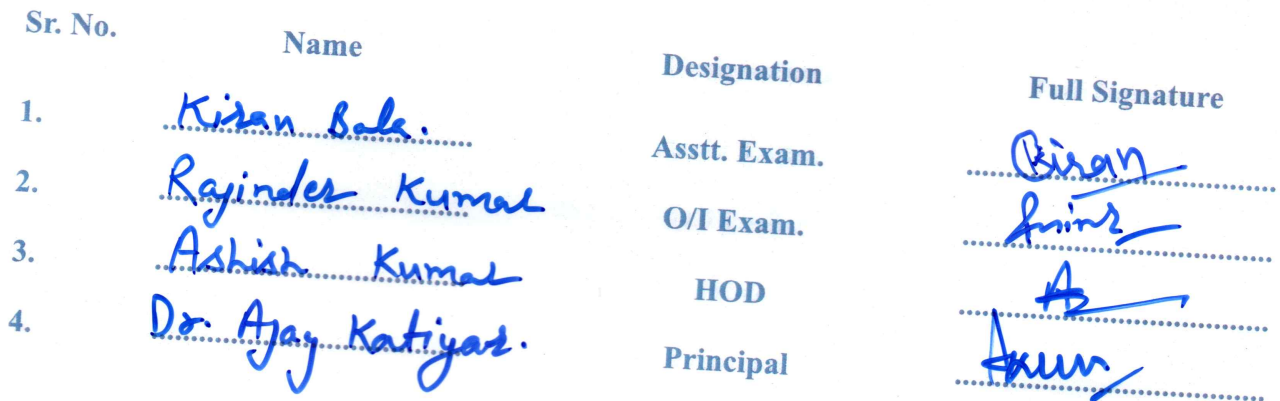 Sr. No. Name Designation Full Signature
1. Kiran Bala. Asstt. Exam. Kiran
2. Rajinder Kumar O/I Exam.
3. Ashish Kumar HOD
4. Dr. Ajay Katiyar. Principal